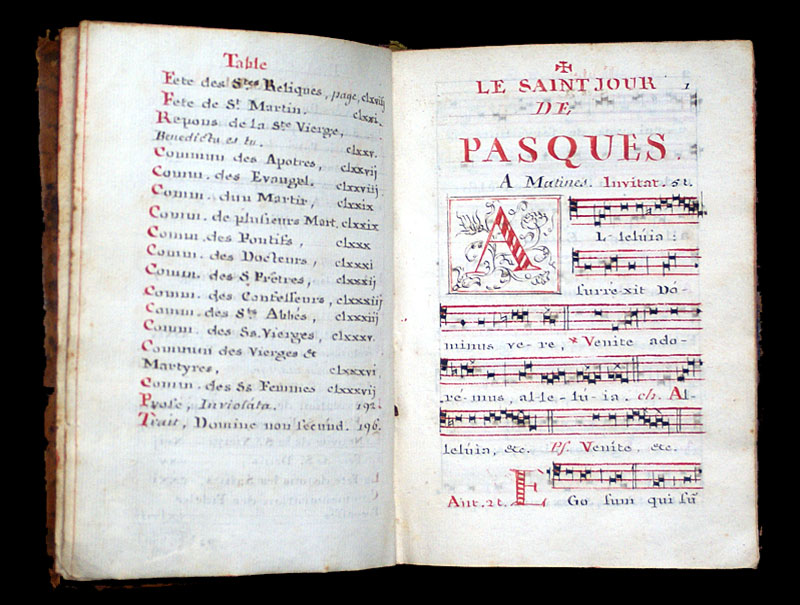 Table
Fete des Stes Reliques, page, clxviij
Fete de St. Martin. clxxi.
Repons de la Ste Vierge,
Benedicta es tu. clxxv.
Commun des Apotres, clxxvij
Comm. des Evangel. clxxviij
Comm. d'un Martir, clxxix
Comm. de plusieurs Mart. clxxix
Com. des Pontifs, clxxx
Com. des Docteurs, clxxxi
Com. des S. Prêtres, clxxxij
Com. des Confesseurs, clxxxiij
Com. des Sts Abbés, clxxxiij
Comm. des Ss. Vierges, clxxxv.
Commun des Vierges et
Martyres, clxxxvi
Comm. des Ss Femmes clxxxvij
Prose, Inviolata. 192.
Trait, Domine non secund. 196.
LE SAINT JOUR 1
DE
PASQUES.
A Matines. Invitat. 5t.
A L-leluia:
surréxit Dó-
minus ve-re, * Venite ado-
ré-mus, al-le-lú-ia. ch. Al-
leluia, etc. Ps. Venite, etc.
Ant. 2t. E Go sum qui sū